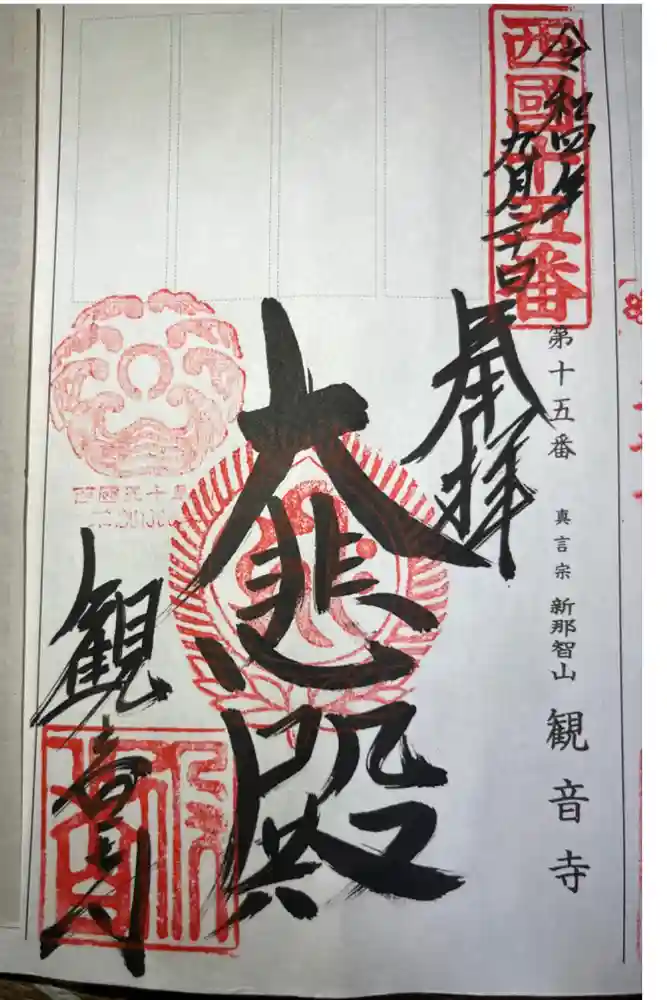 西國十五番
令和四年
九月二十日
奉拝
第十五番 真言宗 新那智山 観音寺
大悲殿
観音寺